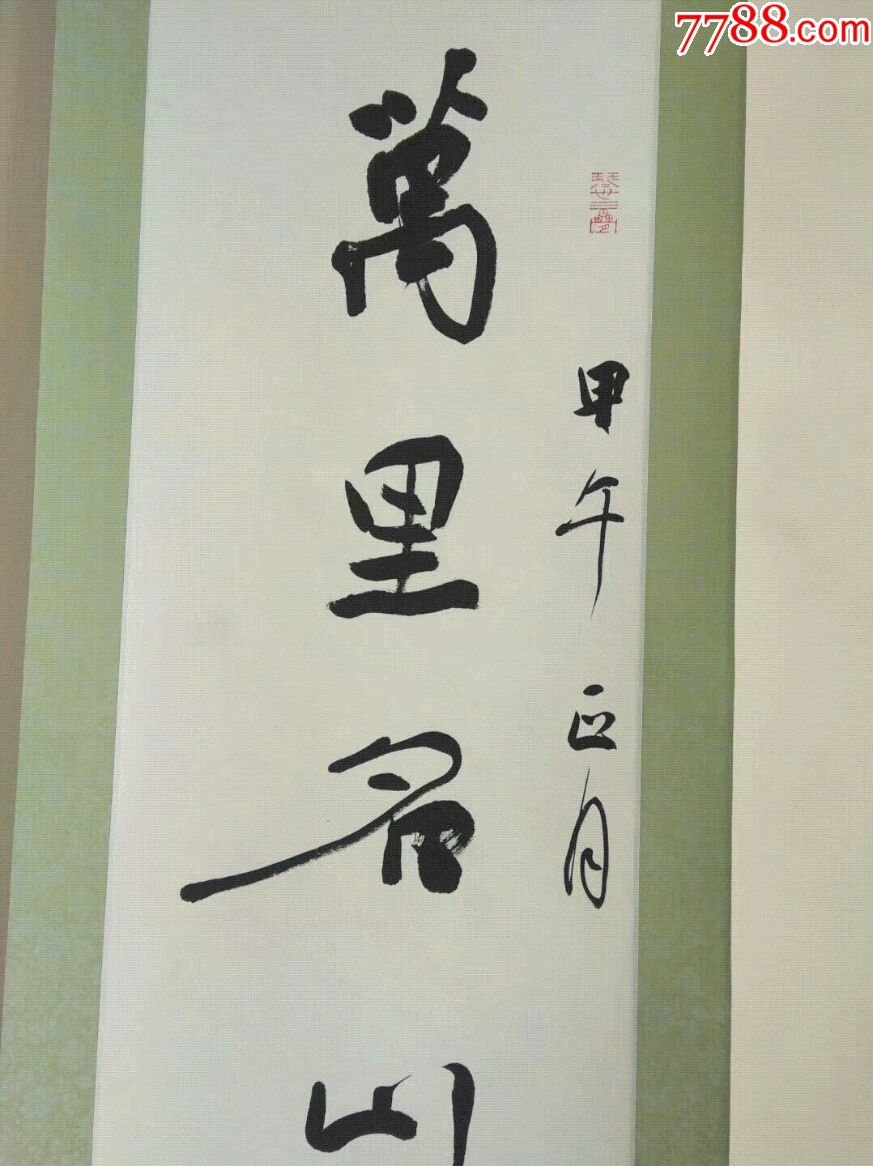 7788.com
甲午正月
萬里名山